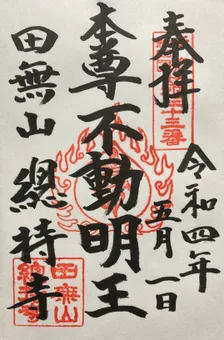 奉拝
令和四年
五月一日
本尊不動明王
田無山
總持寺
田無山